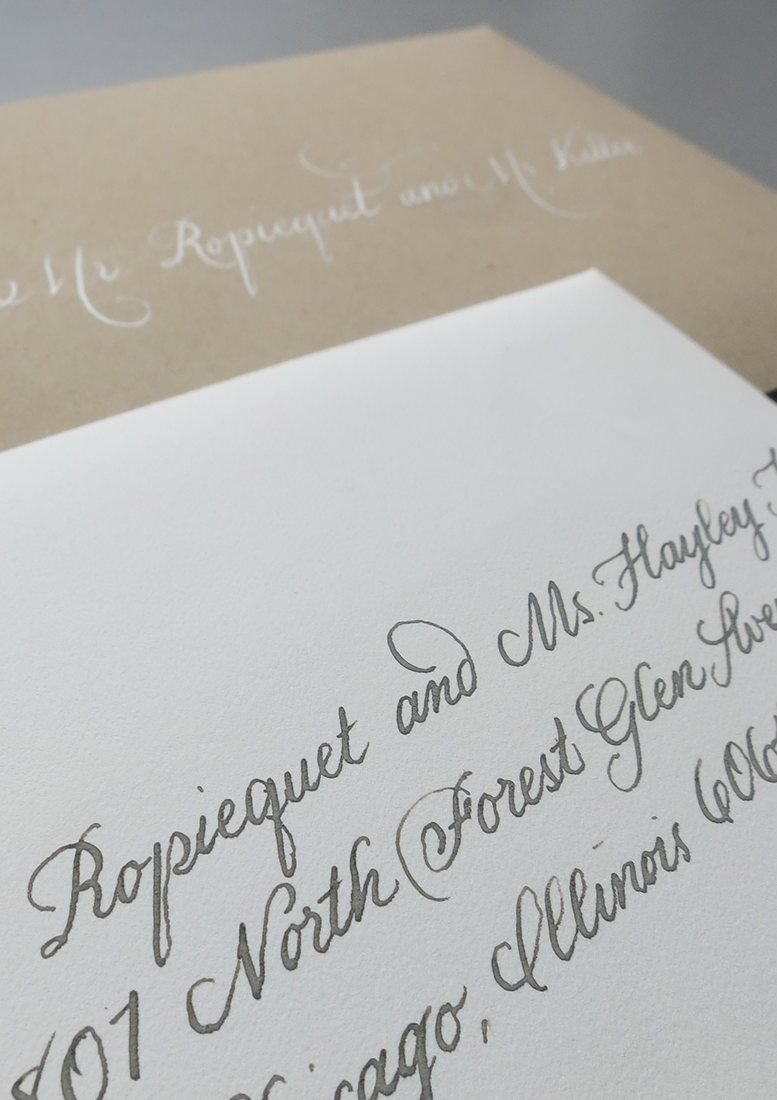 Mr. Ropiequet and Ms.
Ropiequet and Ms. Hayley
01 North Forest Glen
Chicago, Illinois 606